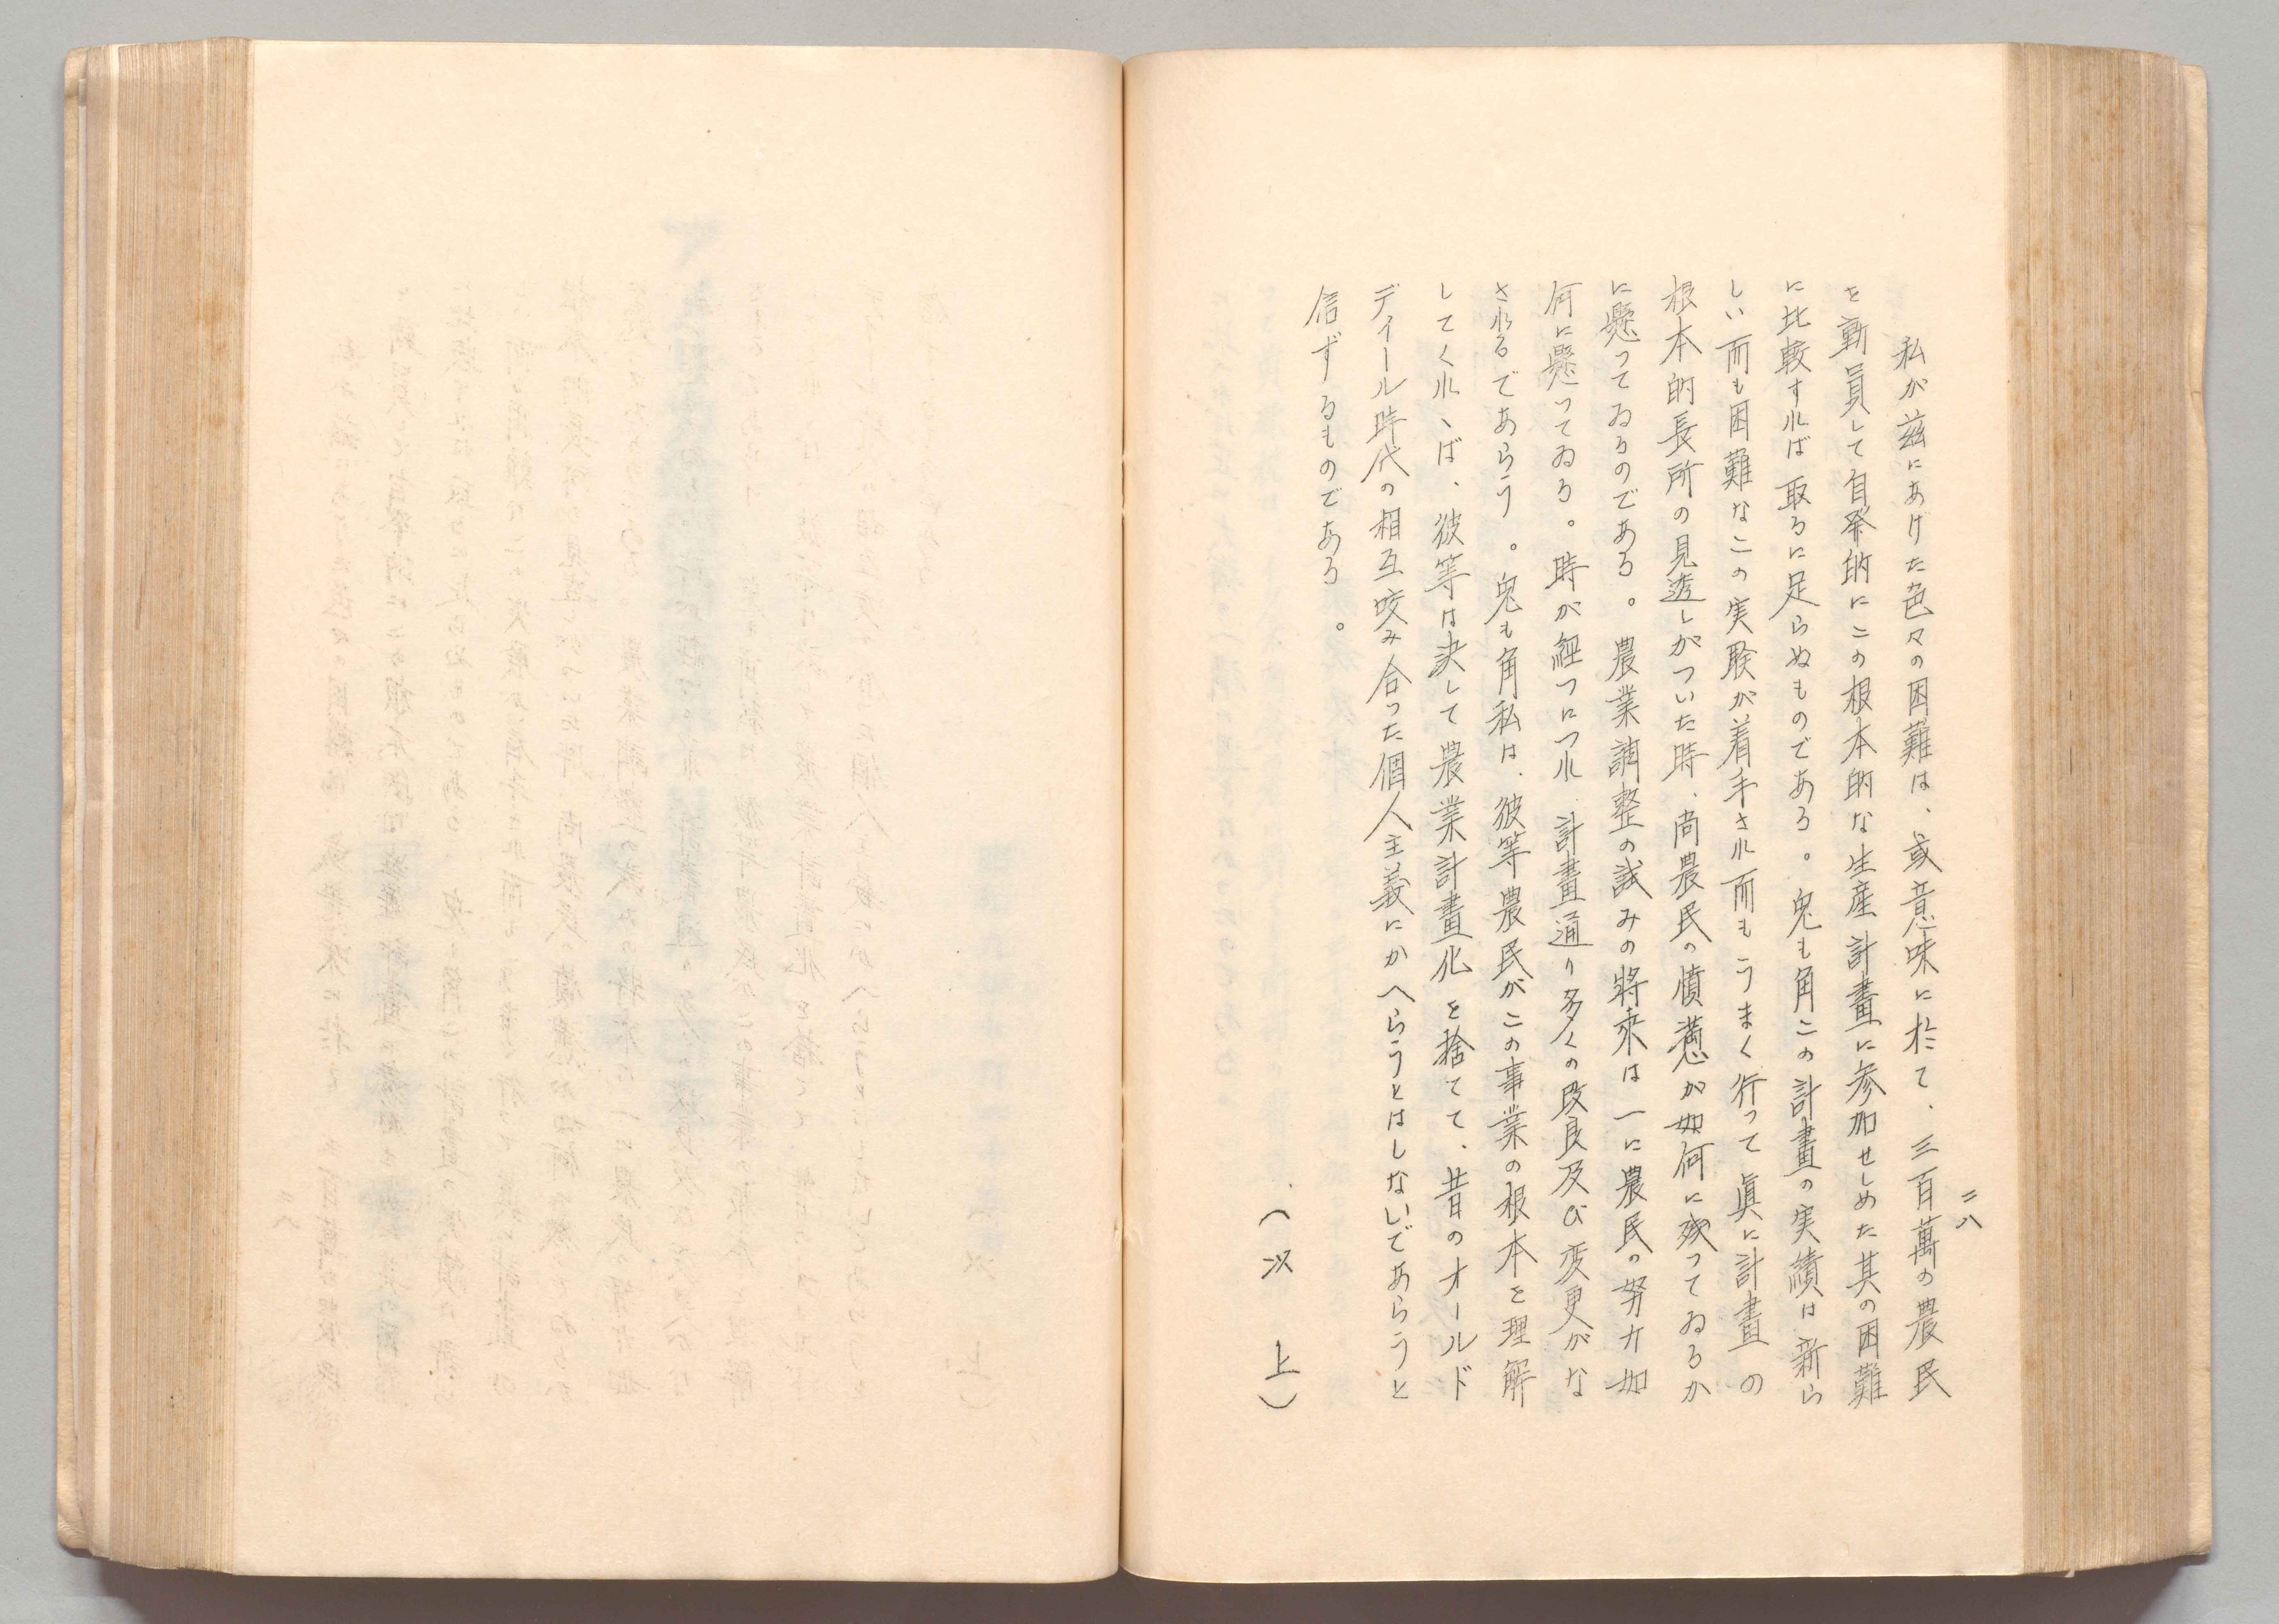 二八
私が茲にあけた色々の困難は、或意味に於て、三百萬の農民
を動員して自発的にこの根本的な生産計畫に参加せしめた其の困難
に比較すれば取るに足らぬものである。兎も角この計畫の実績は新ら
しい而も困難なこの実験が着手され而もうまく行って眞に計畫の
根本的長所の見透しがついた時、尚農民の憤懣が如何に残ってゐるか
に懸ってゐるのである。農業調整の試みの將来は一に農民の努力如
何に懸ってゐる。時が経つにつれ計畫通り多くの改良及び変更がな
されるであらう。兎も角私は、彼等農民がこの事業の根本を理解
してくれゝば、彼等は決して農業計畫化を捨てて、昔のオールド
ディール時代の相互咬み合った個人主義にかへらうとはしないであらうと
信ずるものである。
（以上）